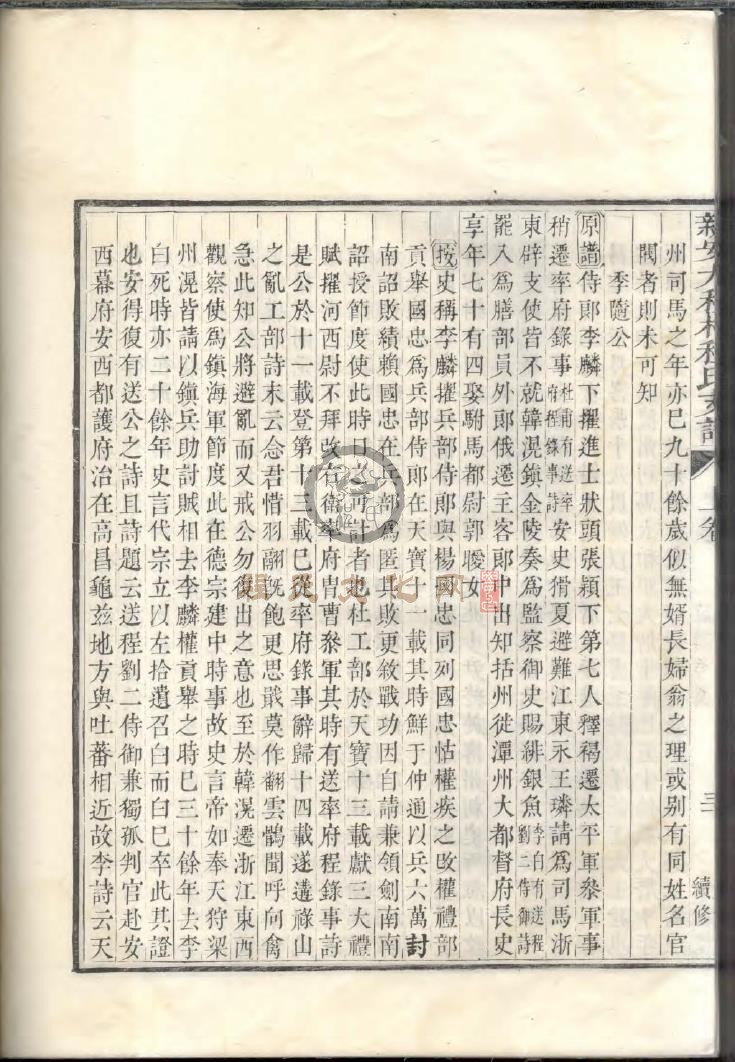 新安大程村程氏支譜
上卷
三
續修
州司馬之年亦已九十餘歲似無婿長婦翁之理或别有同姓名官
閥者則未可知
季隨公
原譜侍郎李麟下擢進士狀頭張頴下第七人釋褐遷太平軍叅軍事
稍遷率府錄事杜甫有送率府程錄事詩安史猾夏避難江東永王璘請爲司馬浙
東辟支使皆不就韓滉鎭金陵奏爲監察御史賜緋銀魚李白有送程劉二侍御詩
罷入爲膳部員外郎俄遷主客郎中出知括州徙潭州大都督府長史
享年七十有四娶駙馬都尉郭曖女
按史稱李麟擢兵部侍郎與楊國忠同列國忠怙權疾之攺權禮部
貢舉國忠爲兵部侍郎在天寶十一載其時鮮于仲通以兵六萬討
南詔敗績賴國忠在兵部爲匿其敗更敘戰功因自請兼領劍南南
詔授節度使此時日次可計者也杜工部於天寶十三載獻三大禮
賦擢河西尉不拜改右衛率府胄曹叅軍其時有送率府程錄事詩
是公於十一載登第十三載已從率府錄事辭歸十四載遂遘祿山
之亂工部詩末云念君惜羽翮旣飽更思戢莫作翻雲鶻聞呼向禽
急此知公將避亂而又戒公勿復出之意也至於韓滉遷浙江東西
觀察使爲鎭海軍節度此在德宗建中時事故史言帝如奉天狩梁
州滉皆請以鎭兵助討賊相去李麟權貢舉之時已三十餘年去李
白死時亦二十餘年史言代宗立以左拾遺召白而白已卒此其證
也安得復有送公之詩且詩題云送程劉二侍御兼獨孤判官赴安
西幕府安西都護府治在高昌龜兹地方與吐蕃相近故李詩云天